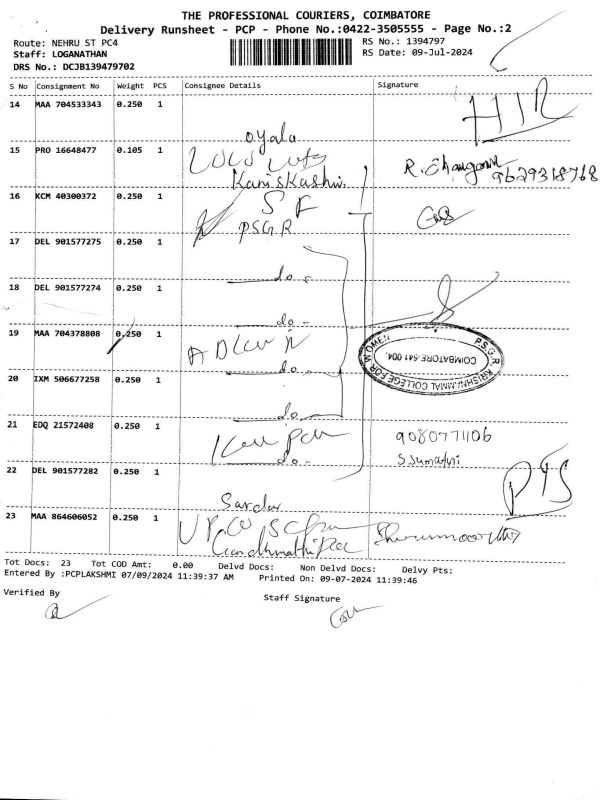 THE PROFESSIONAL COURIERS, COIMBATORE
Delivery Runsheet - PCP - Phone No.:0422-3505555 - Page No.:2
Route: NEHRU ST PC4
RS No.: 1394797
Staff: LOGANATHAN
RS Date: 09-Jul-2024
DRS No.: DCJB139479702
S No Consignment No Weight PCS Consignee Details Signature
14 MAA 704533343 0.250 1
15 PRO 16648477 0.105 1
9629318768
16 KCM 40300372 0.250 1
PSGR
17 DEL 901577275 0.250 1
do
18 DEL 901577274 0.250 1
do
19 MAA 704378808 0.250 1
P.S.G.R. KRISHNAMMAL COLLEGE FOR WOMEN
COIMBATORE-641 004.
do
20 IXM 506677258 0.250 1
do
21 EDQ 21572408 0.250 1
9080771106
do
22 DEL 901577282 0.250 1
Sardar
23 MAA 864606052 0.250 1
Tot Docs: 23 Tot COD Amt: 0.00 Delvd Docs: Non Delvd Docs: Delvy Pts:
Entered By :PCPLAKSHMI 07/09/2024 11:39:37 AM Printed On: 09-07-2024 11:39:46
Verified By
Staff Signature